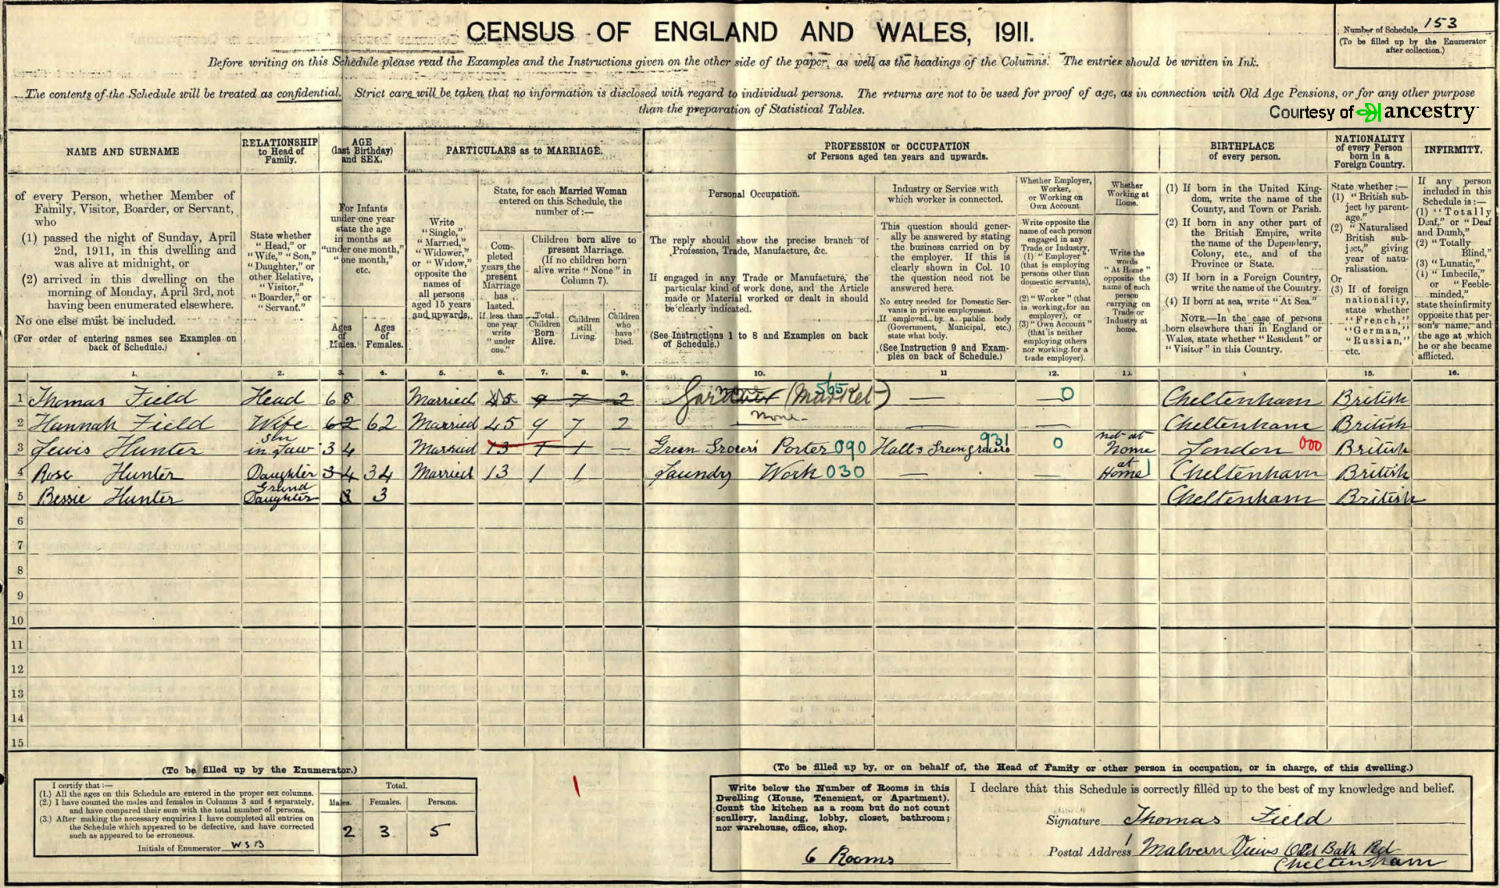 CENSUS OF ENGLAND AND WALES, 1911.
Number of Schedule 153
(To be filled up by the Enumerator after collection.)
Before writing on this Schedule please read the Examples and the Instructions given on the other side of the paper, as well as the headings of the Columns. The entries should be written in Ink.
The contents of the Schedule will be treated as confidential. Strict care will be taken that no information is disclosed with regard to individual persons. The returns are not to be used for proof of age, as in connection with Old Age Pensions, or for any other purpose
than the preparation of Statistical Tables.
Courtesy of ancestry
NAME AND SURNAME
RELATIONSHIP to Head of Family.
AGE (last Birthday) and SEX.
PARTICULARS as to MARRIAGE.
PROFESSION or OCCUPATION
of Persons aged ten years and upwards.
BIRTHPLACE of every person.
NATIONALITY of every Person born in a Foreign Country.
INFIRMITY.
of every Person, whether Member of
Family, Visitor, Boarder, or Servant,
who
(1) passed the night of Sunday, April
2nd, 1911, in this dwelling and
was alive at midnight, or
(2) arrived in this dwelling on the
morning of Monday, April 3rd, not
having been enumerated elsewhere.
No one else must be included.
(For order of entering names see Examples on
back of Schedule.)
State whether
"Head," or
"Wife," "Son,"
"Daughter," or
other Relative,
"Visitor,"
"Boarder," or
"Servant."
For Infants
under one year
state the age
in months as
"under one month,"
"one month,"
etc.
Ages of Males.
Ages of Females.
Write
"Single,"
"Married,"
"Widower,"
or "Widow,"
opposite the
names of
all persons
aged 15 years
and upwards.
State, for each Married Woman
entered on this Schedule, the
number of:—
Completed years the present Marriage has lasted. If less than one year write "under one."
Children born alive to
present Marriage.
(If no children born
alive write "None" in
Column 7).
Total Children Born Alive.
Children still Living.
Children who have Died.
Personal Occupation.
The reply should show the precise branch of
Profession, Trade, Manufacture, &c.
If engaged in any Trade or Manufacture, the
particular kind of work done, and the Article
made or Material worked or dealt in should
be clearly indicated.
(See Instructions 1 to 8 and Examples on back
of Schedule.)
Industry or Service with
which worker is connected.
This question should generally be answered by stating
the business carried on by
the employer. If this is
clearly shown in Col. 10
the question need not be
answered here.
No entry needed for Domestic Servants in private employment.
If employed by a public body
(Government, Municipal, etc.)
state what body.
(See Instruction 9 and Examples on back of Schedule.)
Whether Employer,
Worker,
or Working on
Own Account.
Write opposite the
name of each person
engaged in any
Trade or Industry,
(1) "Employer"
(that is employing
persons other than
domestic servants),
or
(2) "Worker" (that
is working for an
employer), or
(3) "Own Account"
(that is neither
employing others
nor working for a
trade employer).
Whether
Working at
Home.
Write the
words
"At Home"
opposite the
name of each
person
carrying on
Trade or
Industry at
home.
(1) If born in the United Kingdom, write the name of the
County, and Town or Parish.
(2) If born in any other part of
the British Empire, write
the name of the Dependency,
Colony, etc., and of the
Province or State.
(3) If born in a Foreign Country,
write the name of the Country.
(4) If born at sea, write "At Sea."
NOTE.—In the case of persons
born elsewhere than in England or
Wales, state whether "Resident" or
"Visitor" in this Country.
State whether:—
(1) "British subject by parentage."
(2) "Naturalised
British subject," giving
year of naturalisation.
Or
(3) If of foreign
nationality,
state whether
"French,"
"German,"
"Russian,"
etc.
If any person
included in this
Schedule is:—
(1) "Totally
Deaf," or "Deaf
and Dumb,"
(2) "Totally
Blind,"
(3) "Lunatic,"
(4) "Imbecile,"
or "Feeble-minded,"
state the infirmity
opposite that person's name, and
the age at which
he or she became
afflicted.
1. 2. 3. 4. 5. 6. 7. 8. 9. 10. 11 12. 13. 15. 16.
1 Thomas Field Head 68 Married 45 9 7 2 (Market) 565 — 0 Cheltenham British
2 Hannah Field Wife 62 62 Married 45 9 7 2 None — — Cheltenham British
3 Lewis Hunter Son in Law 34 Married 13 1 1 — Green Grocers Porter 090 Halls Greengrocers 931 0 not at Home London 000 British
4 Rose Hunter Daughter 34 34 Married 13 1 1 Laundry Work 030 — — at Home Cheltenham British
5 Bessie Hunter Grand Daughter 3 Cheltenham British
6
7
8
9
10
11
12
13
14
15
(To be filled up by the Enumerator.)
I certify that:—
(1.) All the ages on this Schedule are entered in the proper sex columns.
(2.) I have counted the males and females in Columns 3 and 4 separately,
and have compared their sum with the total number of persons.
(3.) After making the necessary enquiries I have completed all entries on
the Schedule which appeared to be defective, and have corrected
such as appeared to be erroneous.
Initials of Enumerator WSB
Total.
Males. Females. Persons.
2 3 5
(To be filled up by, or on behalf of, the Head of Family or other person in occupation, or in charge, of this dwelling.)
Write below the Number of Rooms in this
Dwelling (House, Tenement, or Apartment).
Count the kitchen as a room but do not count
scullery, landing, lobby, closet, bathroom;
nor warehouse, office, shop.
6 Rooms
I declare that this Schedule is correctly filled up to the best of my knowledge and belief.
Signature Thomas Field
Postal Address 1 Malvern Views Old Bath Rd
Cheltenham